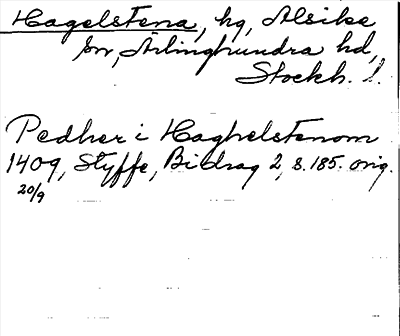 Hagelstena, hg, Alsike
sn, Ärlinghundra hd,
Stockh. l.
Pedher i Haghelstenom
1409, Styffe, Bidrag 2, s. 185. orig.
20/9